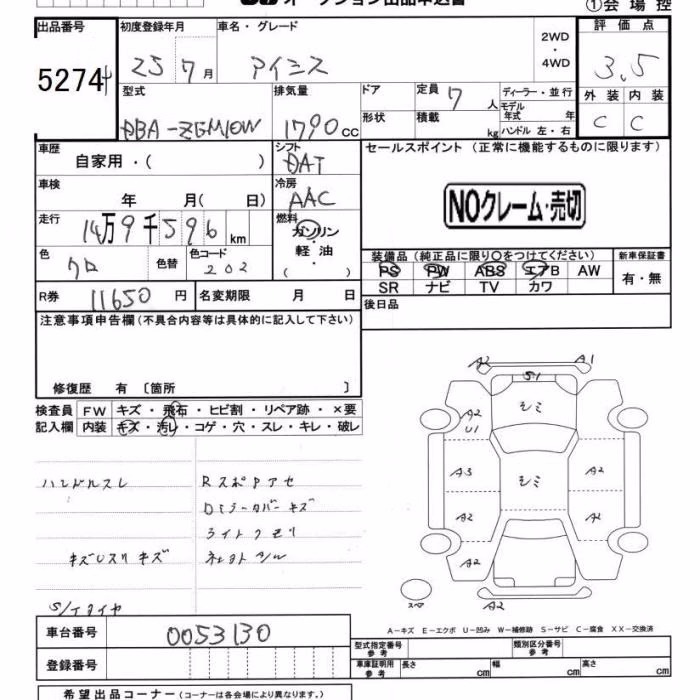 オークション出品申込書
①会場控
出品番号 初度登録年月 車名・グレード 2WD・4WD 評価点
5274 25 7月 アイシス 3.5
型式 排気量 ドア 定員 7人 ディーラー・並行 外装 内装
DBA-ZGM10W 1790cc 形状 積載 kg モデル年式 年 ハンドル 左・右 C C
車歴 自家用・( ) シフト DAT セールスポイント (正常に機能するものに限ります)
車検 年 月( 日) 冷房 AAC NOクレーム・売切
走行 14万9千596km 燃料 ガソリン・軽油・( )
色 クロ 色替 色コード 202 装備品 (純正品に限り〇をつけてください) 新車保証書
PS PW ABS エアB AW 有・無
SR ナビ TV カワ
R券 11650円 名変期限 月 日 後日品
注意事項申告欄(不具合内容等は具体的に記入して下さい)
修復歴 有 〔箇所 〕
検査員 FW キズ・飛石・ヒビ割・リペア跡・×要
記入欄 内装 キズ・汚レ・コゲ・穴・スレ・キレ・破レ
ハンドルスレ RスポPアセ
Dミラーカバーキズ
ライトクモリ
キズUスリキズ
S/Tタイヤ
A2 A1
S1
A2 シミ
U1
A3 シミ A2
A2 A2
A2
スペア A2
A-キズ E-エクボ U-凹み W-補修跡 S-サビ C-腐食 XX-交換済
車台番号 0053130
登録番号
型式指定番号 参考 類別区分番号 参考
車庫証明用 参考 長さ cm 幅 cm 高さ cm
希望出品コーナー (コーナーは各会場により異なります。)